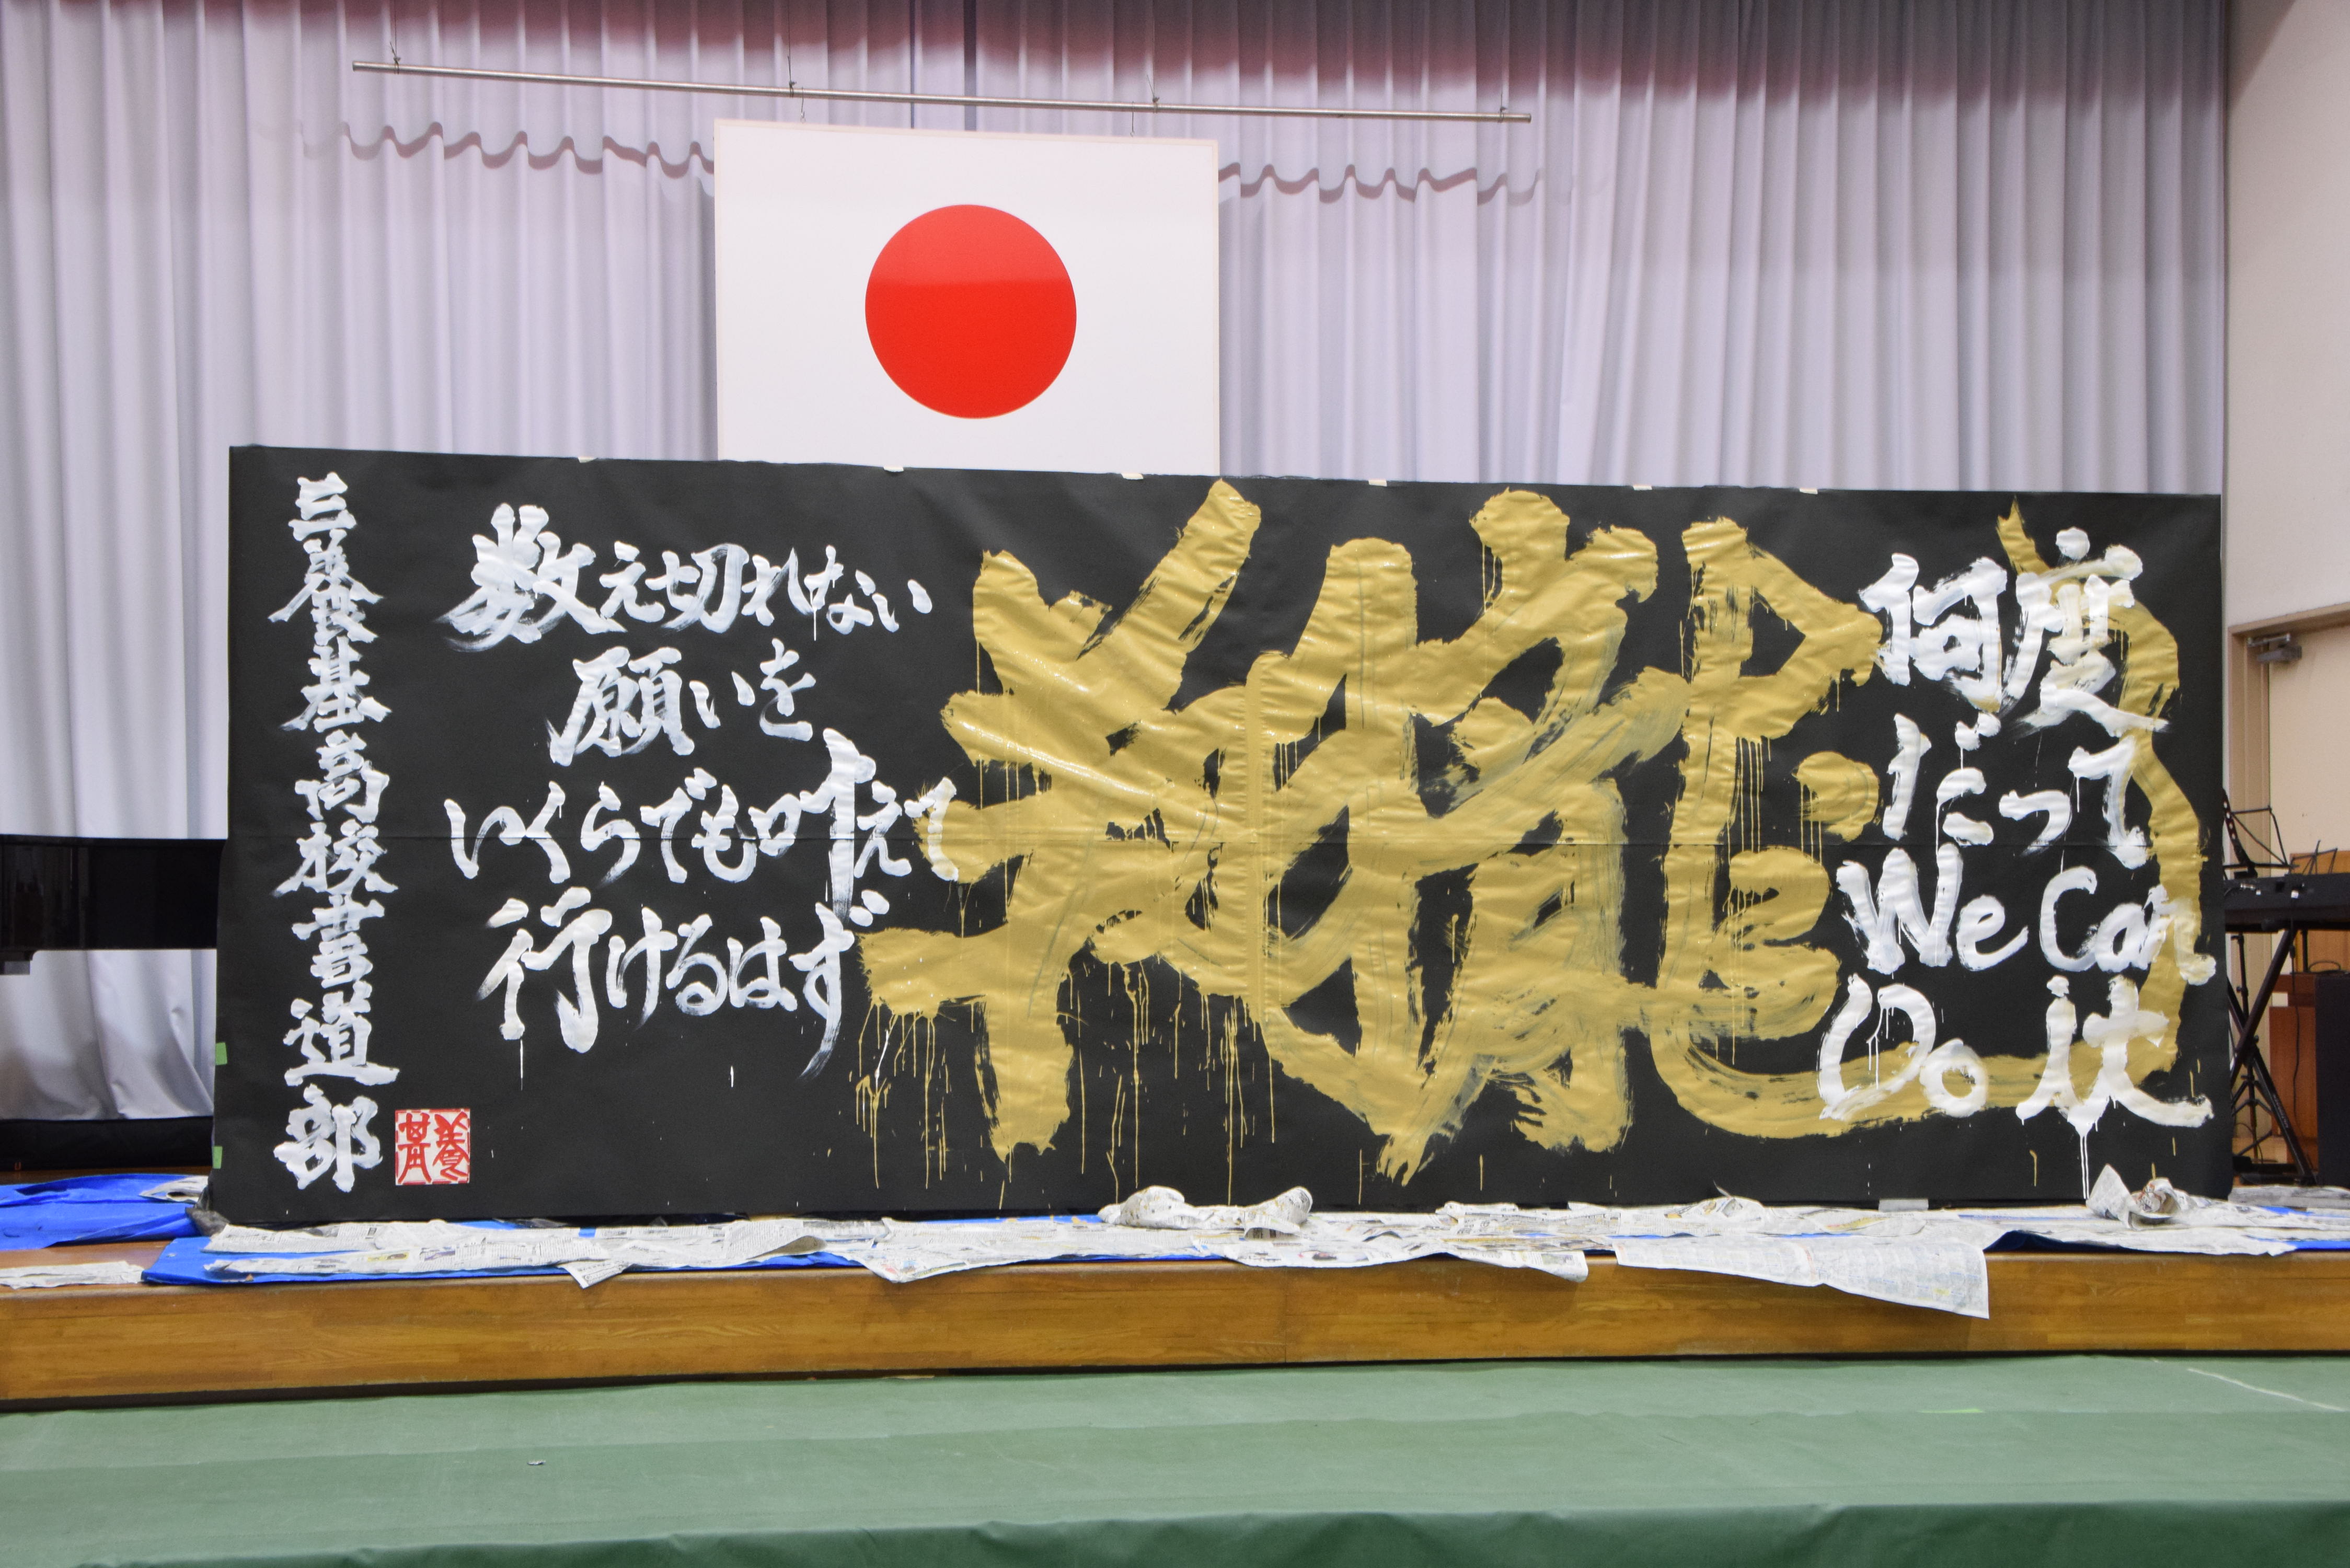 何度
だって
We Can
Do it
数え切れない
願いを
いくらでも叶えて
行けるはず
三養基高校書道部